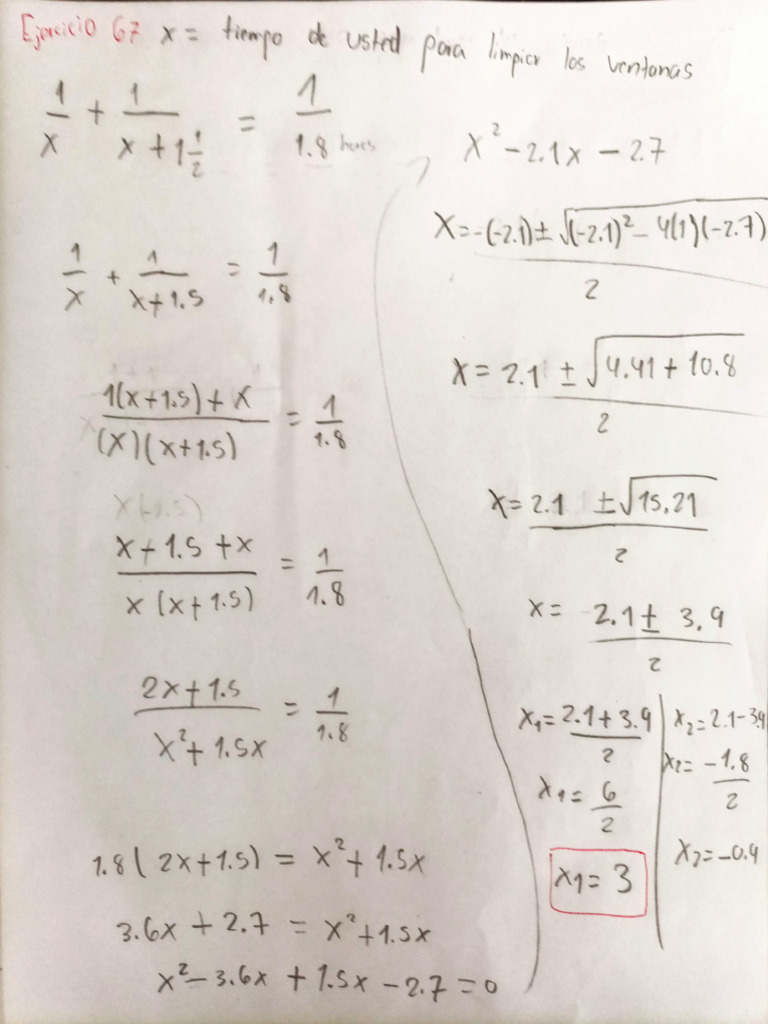 Ejercicio 67 x = tiempo de usted para limpiar las ventanas
1/x + 1/(x + 1 1/2) = 1/1.8 horas
1/x + 1/(x+1.5) = 1/1.8
(1(x+1.5) + x)/((x)(x+1.5)) = 1/1.8
(x+1.5+x)/(x(x+1.5)) = 1/1.8
(2x+1.5)/(x²+1.5x) = 1/1.8
1.8(2x+1.5) = x²+1.5x
3.6x + 2.7 = x²+1.5x
x²-3.6x + 1.5x - 2.7 = 0
x² - 2.1x - 2.7
x = (-(-2.1) ± √((-2.1)² - 4(1)(-2.7)))/2
x = (2.1 ± √(4.41 + 10.8))/2
x = (2.1 ± √15.21)/2
x = (2.1 ± 3.9)/2
x₁ = (2.1+3.9)/2
x₁ = 6/2
x₁ = 3
x₂ = 2.1-3.9
x₂ = -1.8/2
x₂ = -0.9